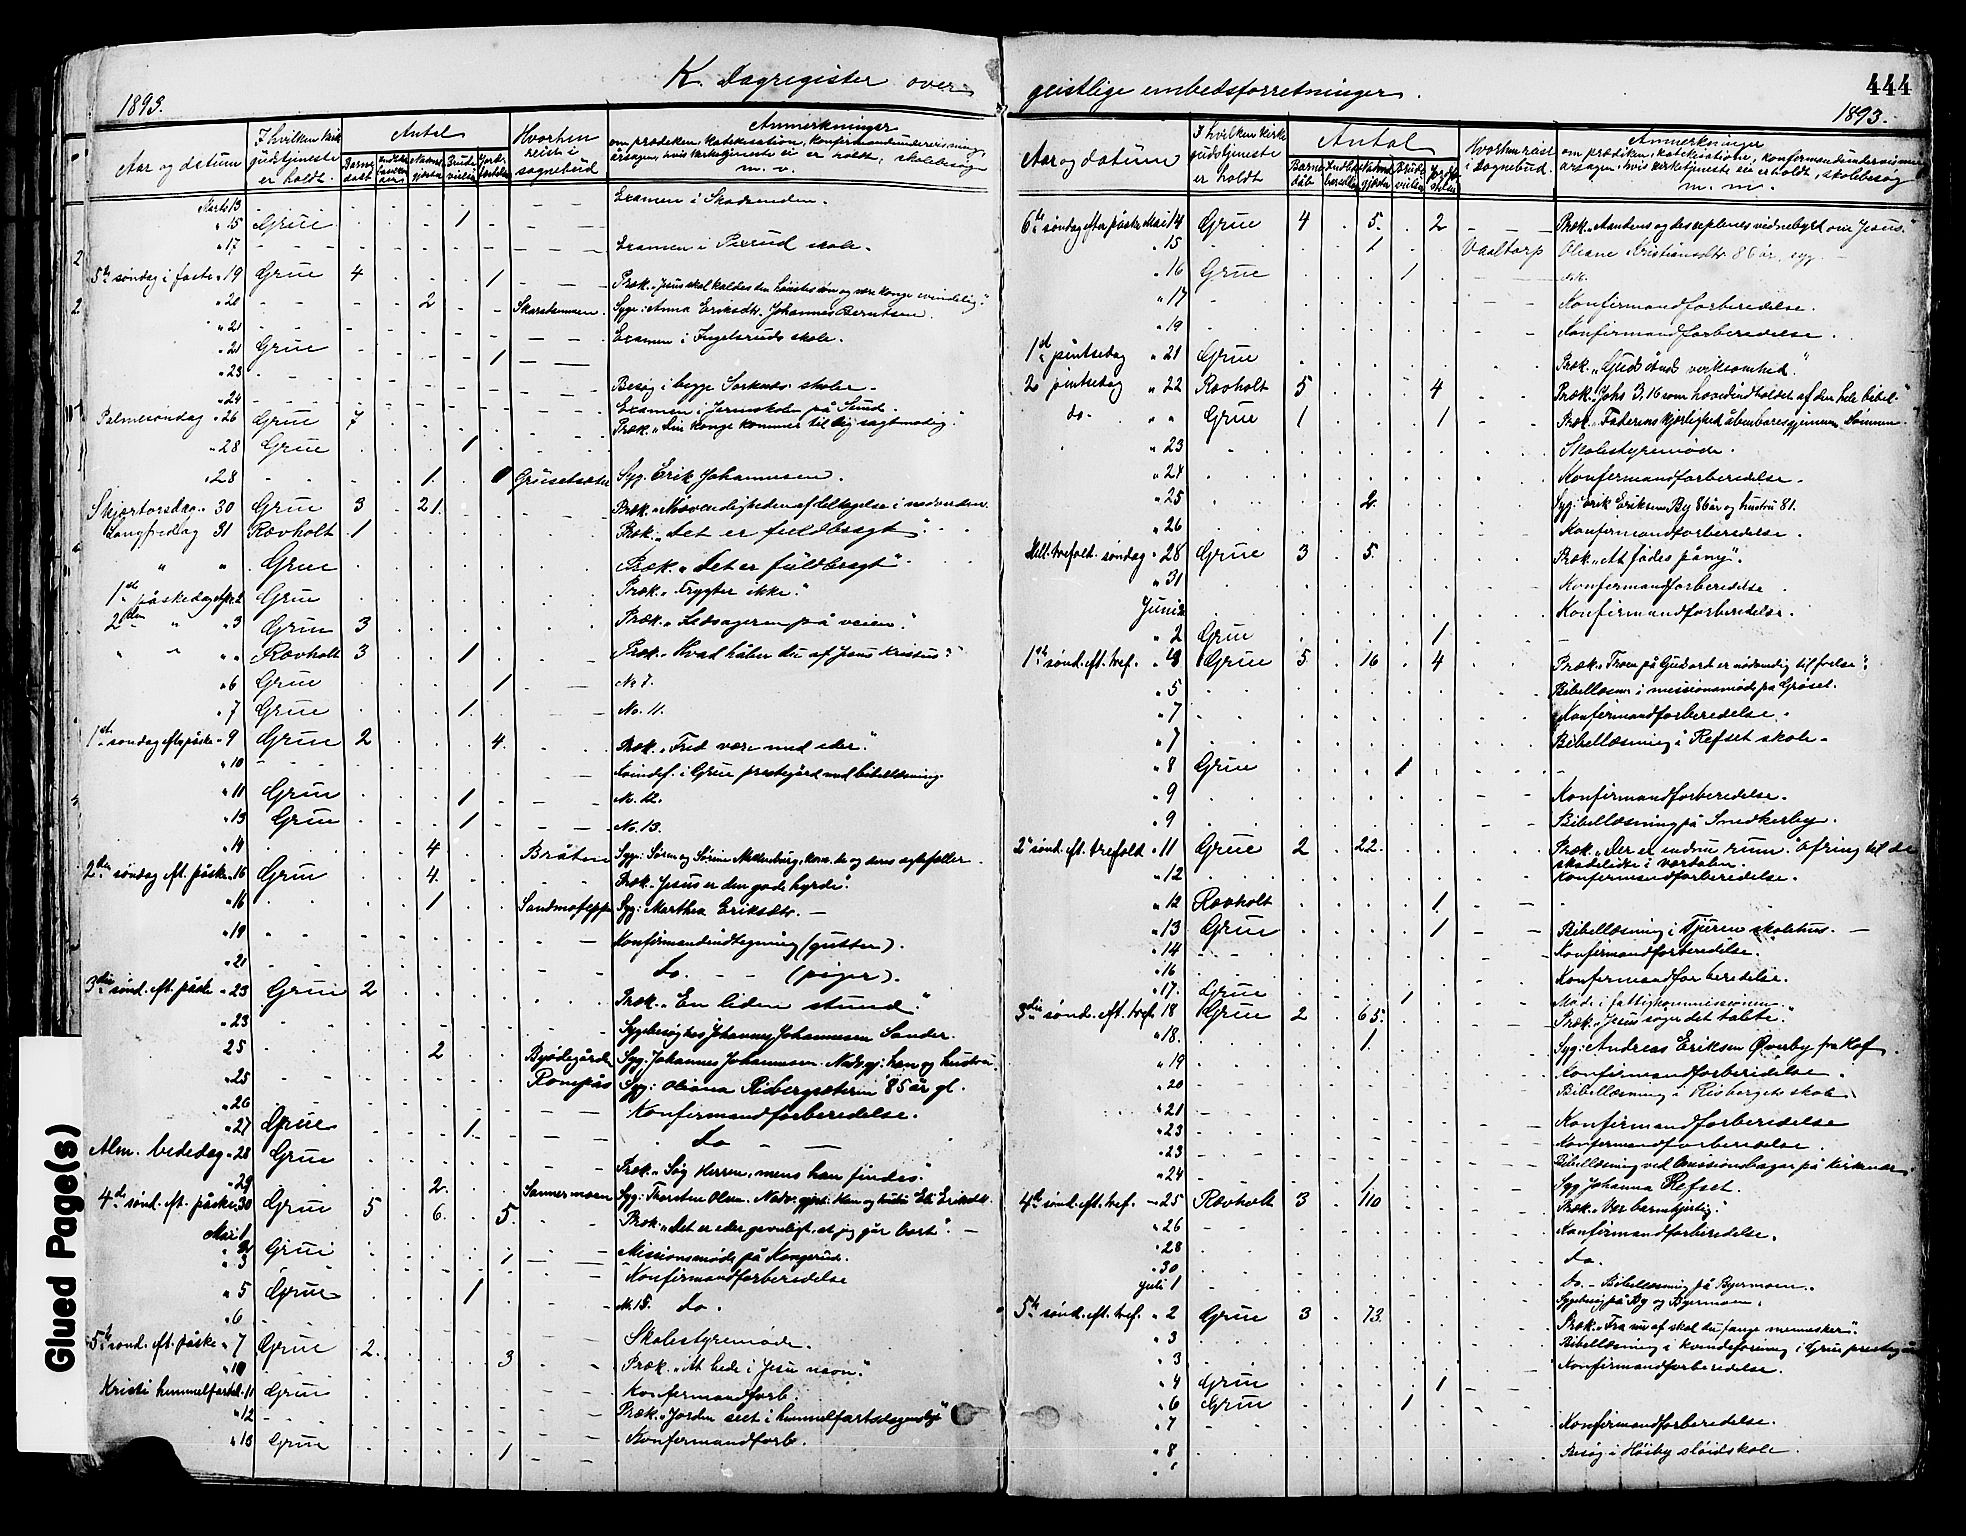 K. Dagregister over
1893.
Aar og datum
I hvilken kirke gudstjeneste er holdt.
Antal
Hvorhen reist i sognebud
Anmerkninger
om prædiken, katekisation, konfirmandundervisning, årsagen, hvis kirketjeneste ei er holdt, skolebesøg
m. v.
Marts 13 Examen i
" 15 Grue 1
" 17 Examen i skole.
5te søndag i faste " 19 Grue 4 1 Præk. "Jesus skal kaldes den høiestes søn og være konge evindelig."
" 20 2 Syge: Anna Eriksdtr. Johannes Berntsen
" 21 Examen i Ingelsruds skole.
" 21 Grue 1
" 23 Besøg i begge skoler.
" 24 Examen i på
Palmesøndag " 26 Grue 7 Præk. "Din konge kommer til dig sagtmodig."
" 28 Grue 1
" 28 1. Grüsetsæter Syg. Erik Johannesen.
Skjærtorsdag " 30 Grue 3 21. Præk. "Nødvendigheden af deltagelse i nadveren
Langfredag 31 Rovholt 1 Præk. "Det er fuldbragt".
" " Grue Præk. "Det er fuldbragt".
1ste påskedag April 2 Grue Præk. "Frygter ikke."
2den " " 3 Grue 3 Præk. "Ledsageren på veien."
" " " " Rovholt 3 1 Præk. "Hvad håber du af Jesus Kristus?"
" 6 Grue 1 No 7.
" 7 Grue 1. No. 11.
1ste søndag efter påske " 9 Grue 2 4. Præk. "Fred være med eder".
" 10 Kvindef. i Grue prestegård med bibellæsning
" 11 Grue 1 No. 12.
" 13 Grue 1 No. 13.
" 14 4 Bråten Syge: Søren og Sørine
2den søndag eft. påske " 16 Grue 4. Præk. "Jesus er den gode hyrde".
" 16 1 Syg: Marthea Eriksdtr. —
" 19 Konfirmandindtegning (gutter).
" 21 do. — (piger).
3die sønd. eft. påske " 23 Grue 2 Præk. "En liden stund".
" 23 Sygebesøg hos Johannes Johannesen Sander
25 2 Syg. Johannes Johannesen. Nadv. gj: han og hustru
" 25 Syg: Oliana 85 år gl.
" 26 Konfirmandforberedelse.
" 27 Grue 1. do —
Alm. bededag " 28 Grue Præk. "Søg Herren, mens han findes".
" 29 2. Syg: Thorsten Olsen. Nadv. gjest: Han og hustru Eli Eriksdtr.
4de sønd. eft. påske " 30 Grue 5 6. 5. Præk. "Det er eder gavnligt, at jeg går bort". —
Mai 1 Missionsmøde på Kongerud.
" 2 Grue
" 3 1 Konfirmandforberedelse
" 5 Grue 1 No 15. do.
" 6 Skolestyremøde.
5te sønd. eft. påske " 7 Grue 2. 3 Præk. "At bede i Jesu navn".
" 10 Konfirmandforb.
Kristi himmelfartsd. 11 Grue Præk. "Jorden seet i himmelfartsdagens lys"
" 12 Konfirmandforb.
" 13 Grue 1
Glued Page(s)
geistlige embedsforretninger.
444
1893.
Aar og datum
I hvilken kirke gudstjeneste er holdt
Antal
Hvorhen reist i sognebud.
Anmerkninger
om prædiken, katekisation, konfirmandundervisning
årsagen, hvis kirketjeneste ei er holdt, skolebesøg
m. m.
6te søndag efter påske Mai 14 Grue 4 5. 2 Præk. "Aandens og disciplenes vidnesbyrd om Jesus."
" 15 1 Vaaltorp Oleane Kristiansdtr 86 år, syg.
" 16 Grue 1
" 17 Konfirmandforberedelse.
" 19 Konfirmandforberedelse.
1ste pintsedag " 21 Grue Præk. "Guds Ånds virksomhed".
2 pintsedag " 22 Rovholt 5 4 Præk. Johs 3,16 som hovedindholdet af den hele bibel"
do. " " Grue 1 1 Præk. "Faderens kjærlighed åbenbares gjennem Sønnen.
" 23 Skolestyremøde.
" 24 Konfirmandforberedelse.
" 25 2. Syg: Erik Eriksen By 86 år og hustru 81.
" 26 Konfirmandforberedelse.
trefold. søndag " 28 Grue 3 5. Præk. "At fødes påny".
" 31 Konfirmandforberedelse
Juni 2 Konfirmandforberedelse.
" 2 Grue 1
1ste sønd. eft. tref. " 4 Grue 5 16 4 Præk. "Troen på Guds ord er nødvendig til frelse".
" 5 Bibellæsn. i missionsmøde på Grøset.
" 7 Konfirmandforberedelse.
" 7 Bibellæsning i Refset skole.
" 8 Grue 1
" 9 Konfirmandforberedelse.
" 9 Bibellæsning på Smedkerby.
2den sønd. eft. trefold. " 11 Grue 2 22. Præk. "Der er endnu rum". Ofring til de
skadelidte i værdalen.
" 12 Konfirmandforberedelse.
" 12 Rovholt 1.
" 13 Grue 1 Bibellæsning i Tjuren skolehus. —
" 14 Konfirmandforberedelse.
" 16 Konfirmandforberedelse.
" 17. Grue 1 Møde i fattigkommissionen.
3die sønd. eft. tref. 18 Grue 2 65. Præk. "Jesus søger det tabte".
" 18. 1. Syg: Andreas Eriksen Øverby fra Kof.
" 19 Konfirmandforberedelse.
" 20 Bibellæsning i Risbergets skole
" 21 Konfirmandforberedelse
" 23 Konfirmandforberedelse.
" 23 Bibellæsning ved Missionsbazar på Kirkenær.
" 24 1 Syg Johanna Refset.
4de sønd. eft. tref. " 25 Rovholt 3 110 Præk. "Vær barmhjertig".
" 26 Konfirmandforberedelse.
" 28 do.
" 30 do. — Bibellæsning på Byermoen.
Juli 1 Sygebesøg på By og Byermoen.
5te sønd. eft. tref. " 2 Grue 3 73. Præk. "Fra nu af skal du fange mennesker".
" 3 Bibellæsning i kvindeforening i Grue prestegård
" 3 Konfirmandforberedelse.
" 4 Grue 1
" 6 Grue 1
" 7 Konfirmandforberedelse.
" 8 Besøg i Høiby sløidskole.